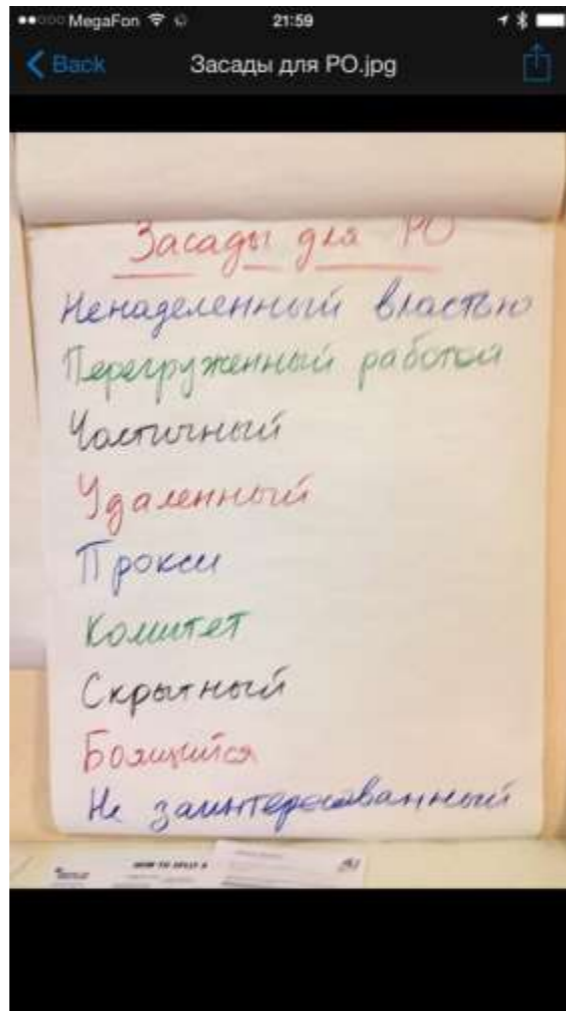 MegaFon 21:59
Back Засады для PO.jpg
Засады для PO
Ненаделенный властью
Перегруженный работой
Частичный
Удаленный
Прокси
Комитет
Скрытный
Боящийся
Не заинтересованный
HOW TO SPLIT A